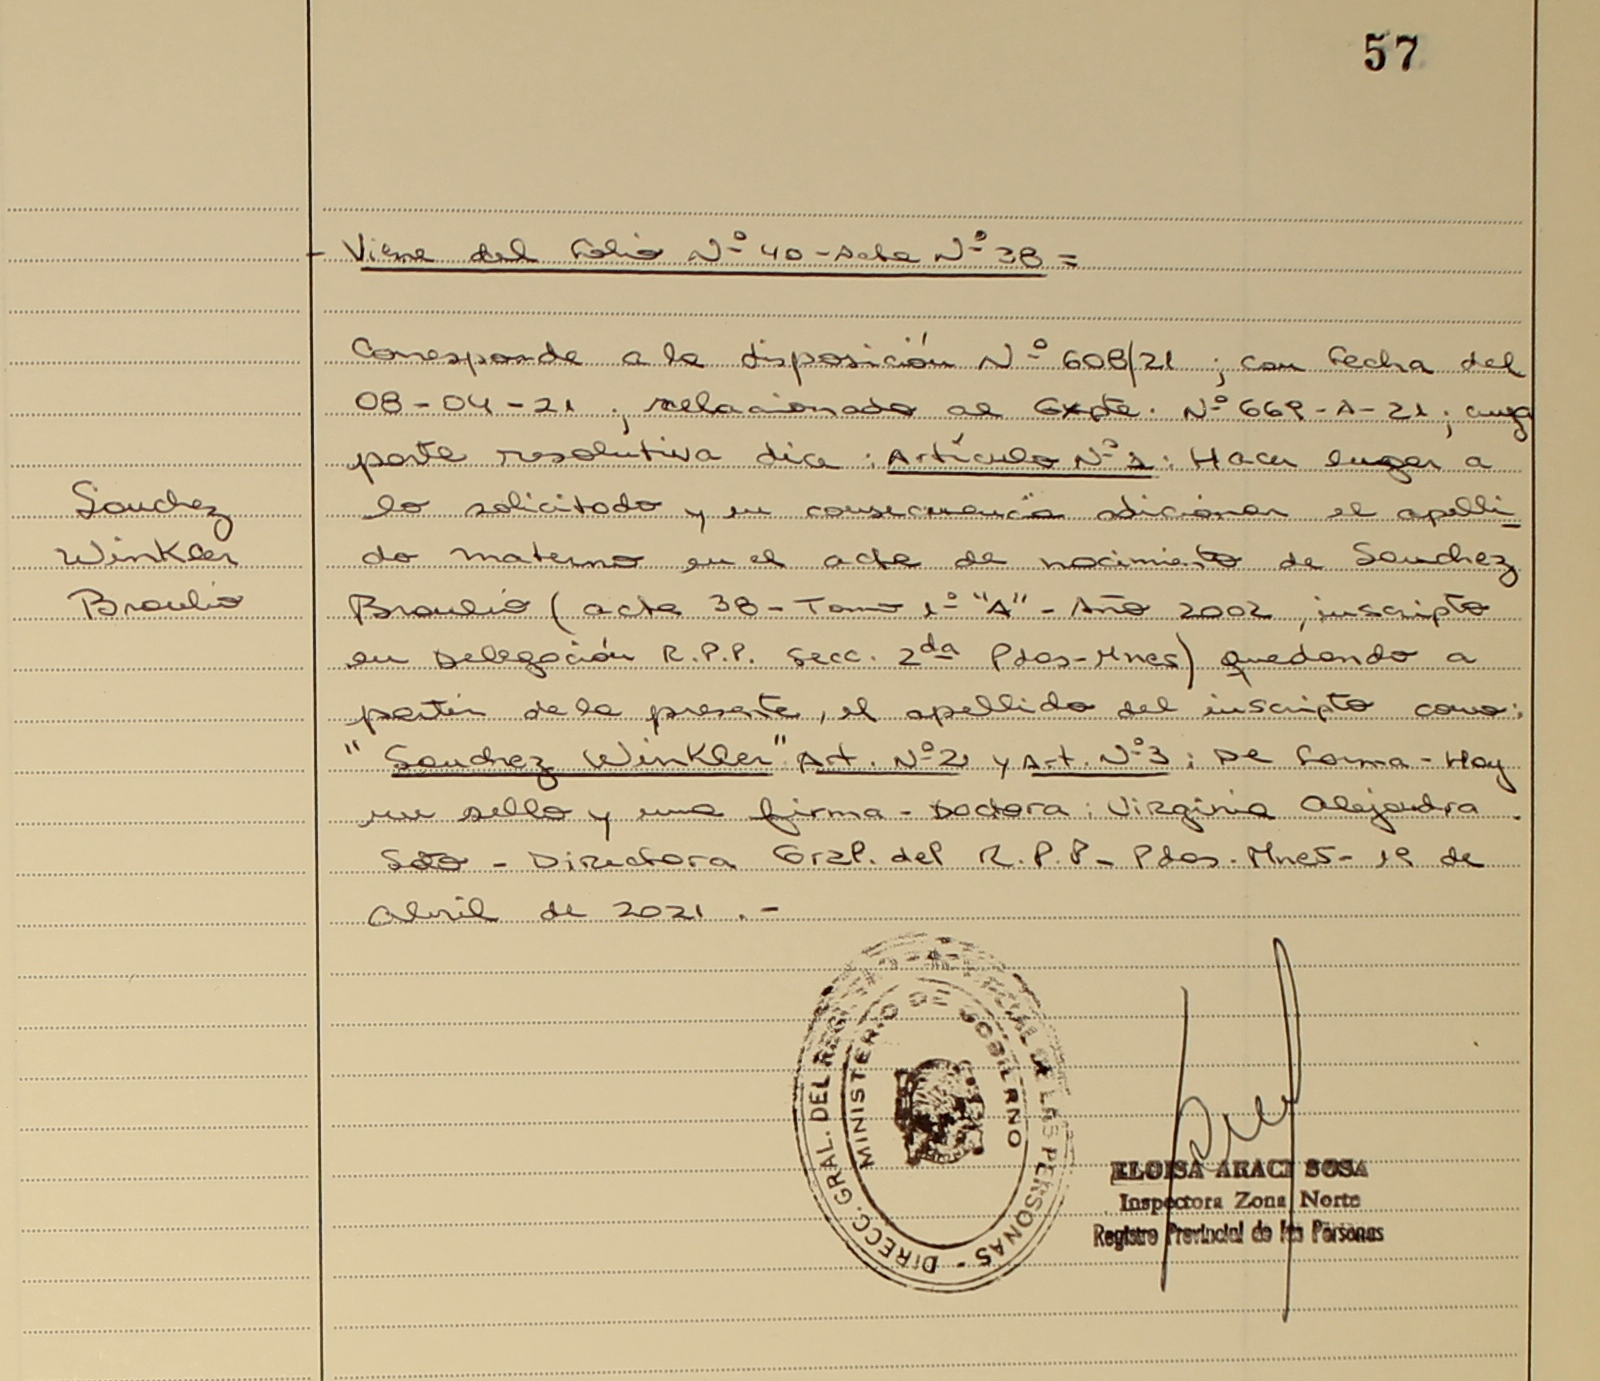 57
- Viene del Folio Nº 40 - Acta Nº 38 =
Corresponde a la disposición Nº 608/21 ; con fecha del
08-04-21 ; relacionado al Expte. Nº 669-A-21 ; cuya
parte resolutiva dice : Artículo Nº 1 : Hacer lugar a
Sanchez
lo solicitado y en consecuencia adicionar el apelli-
Winkler
do materno en el acta de nacimiento de Sanchez
Braulio
Braulio ( acta 38 - Tomo 1º "A" - Año 2002, inscripto
en Delegación R.P.P. Secc. 2da Pdas-Mnes) quedando a
partir de la presente, el apellido del inscripto como:
"Sanchez Winkler" Art. Nº 2 y Art. Nº 3 : De forma - Hay
un sello y una firma - Doctora : Virginia Alejandra
Soto - Directora Gral. del R.P.P - Pdas. Mnes - 19 de
abril de 2021 .-
DIRECC. GRAL. DEL REG DE LAS PERSONAS -
MINISTERIO DE GOBIERNO
ELOISA ARACI SOSA
Inspectora Zona Norte
Registro Provincial de las Personas